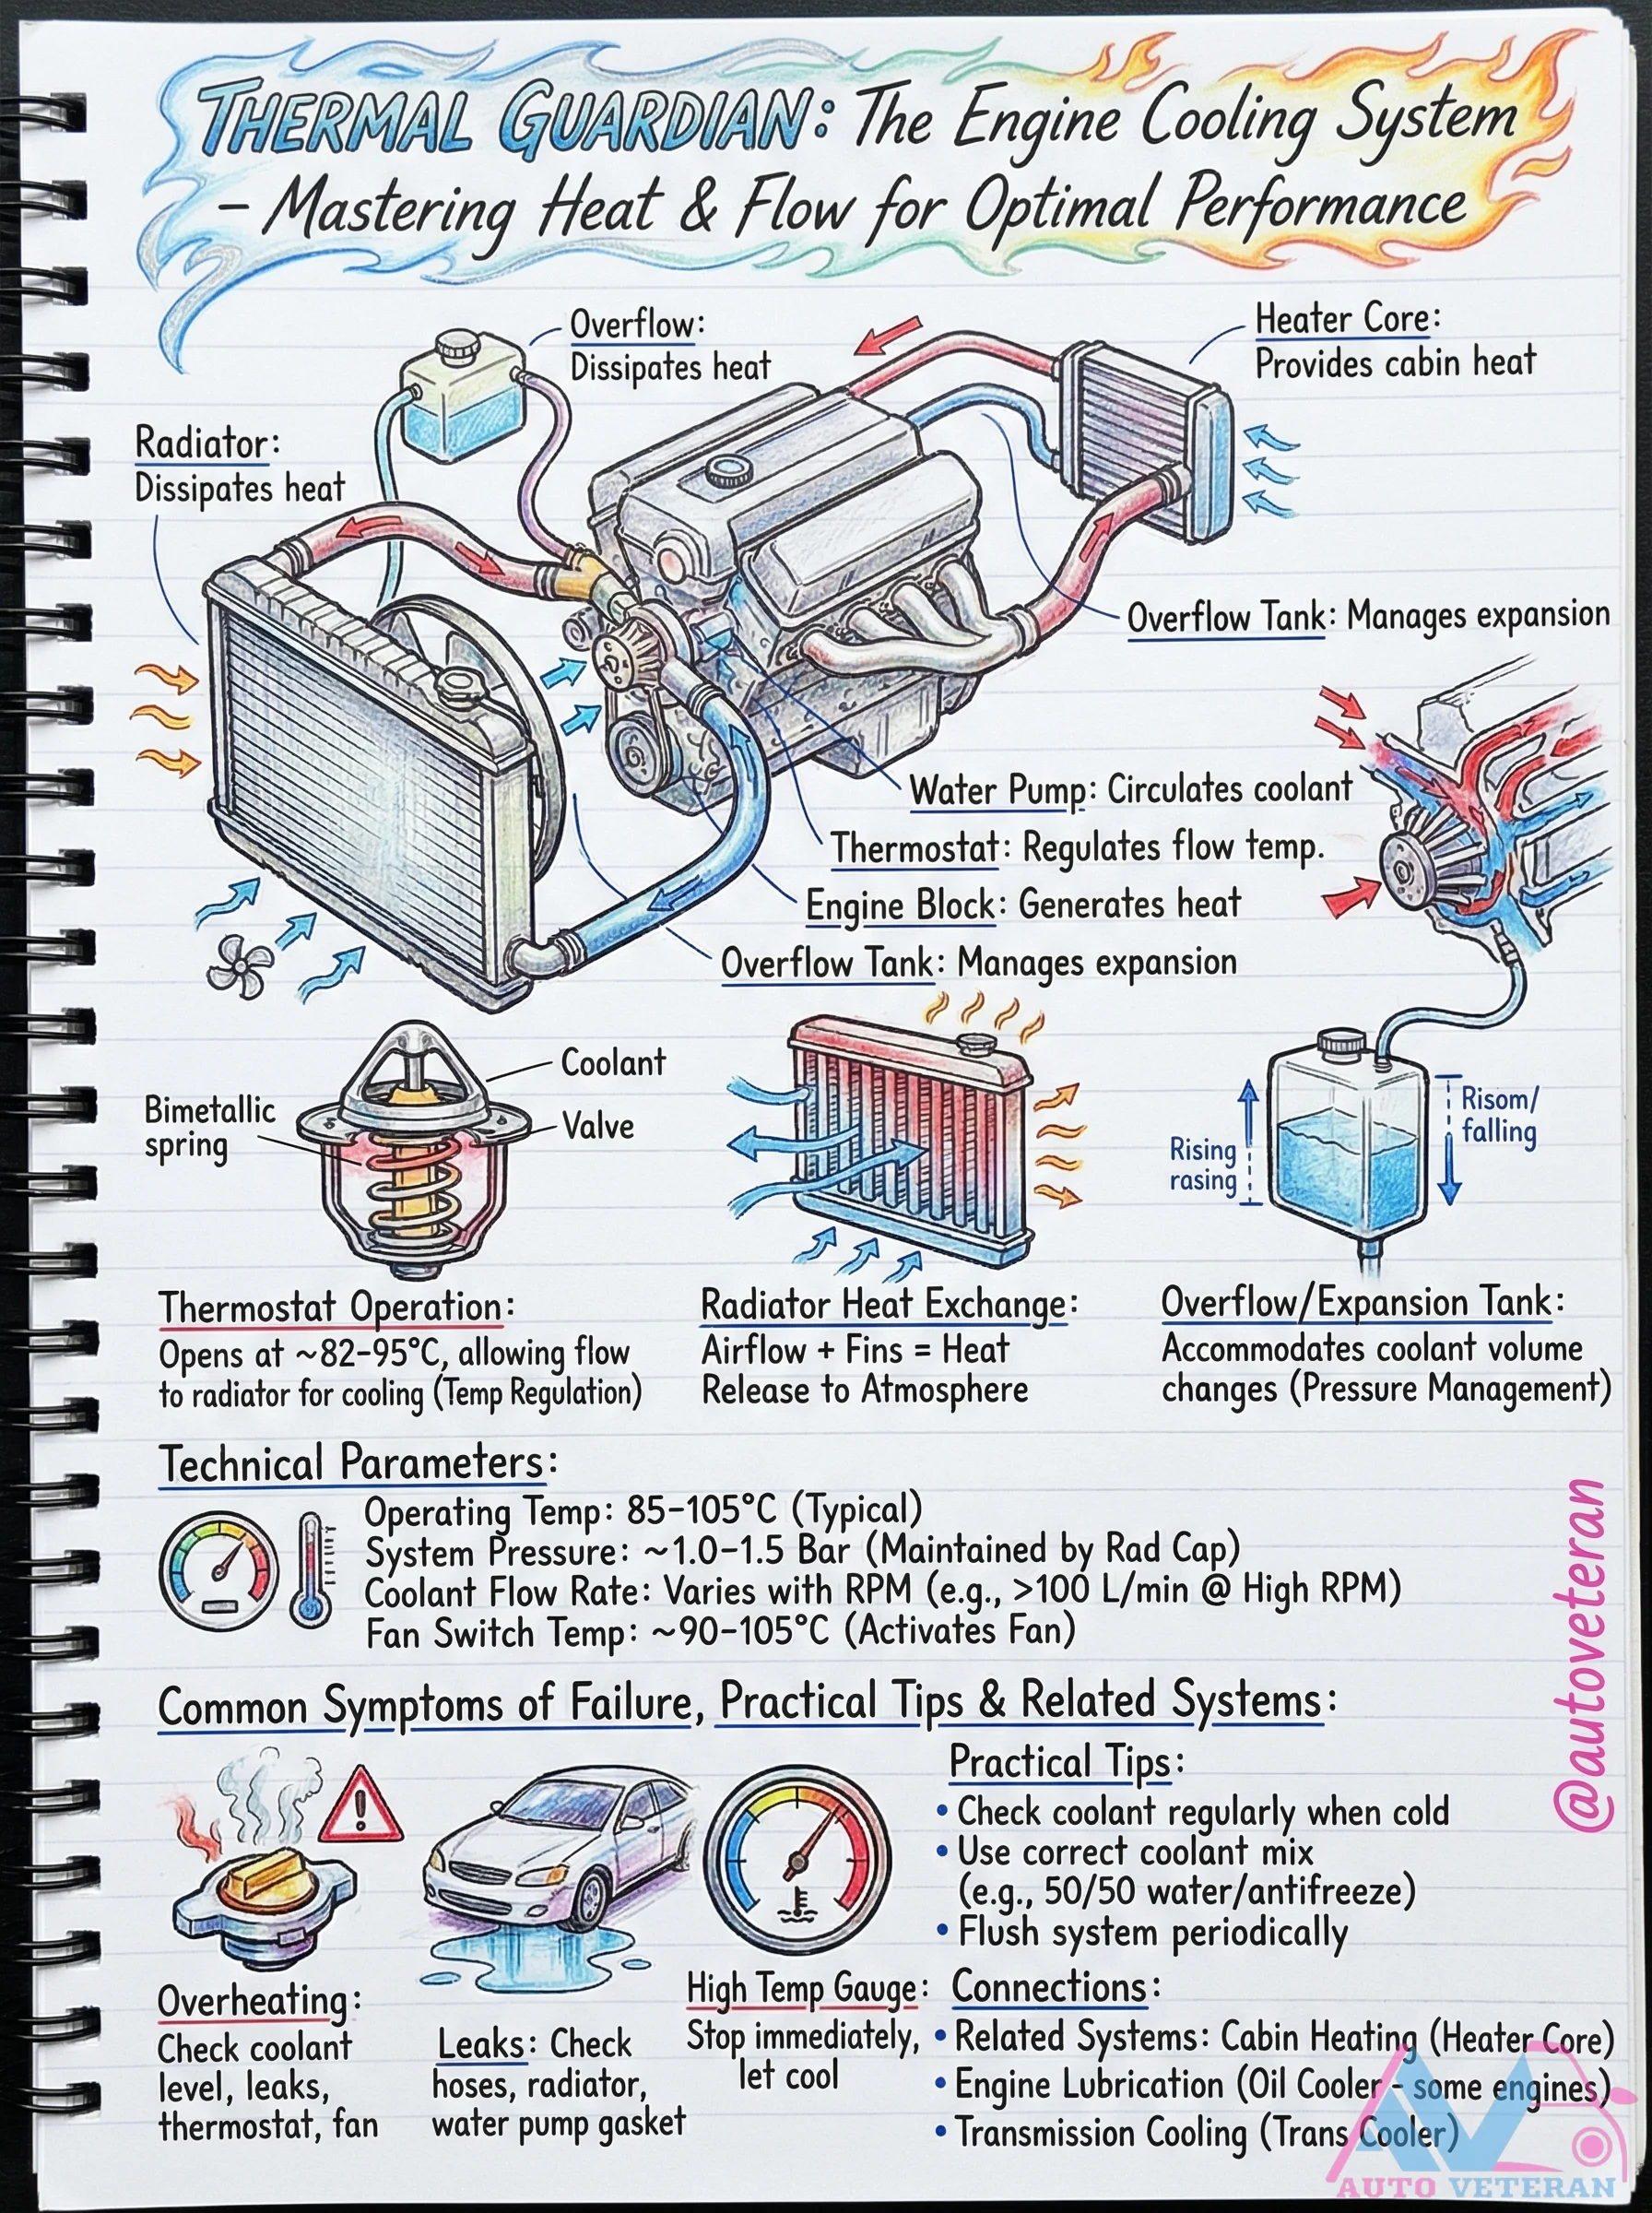 THERMAL GUARDIAN: The Engine Cooling System
– Mastering Heat & Flow for Optimal Performance
Overflow:
Dissipates heat
Heater Core:
Provides cabin heat
Radiator:
Dissipates heat
Overflow Tank: Manages expansion
Water Pump: Circulates coolant
Thermostat: Regulates flow temp.
Engine Block: Generates heat
Overflow Tank: Manages expansion
Bimetallic
spring
Coolant
Valve
Rising
rasing
Risom/
falling
Thermostat Operation:
Opens at ~82–95°C, allowing flow
to radiator for cooling (Temp Regulation)
Radiator Heat Exchange:
Airflow + Fins = Heat
Release to Atmosphere
Overflow/Expansion Tank:
Accommodates coolant volume
changes (Pressure Management)
Technical Parameters:
Operating Temp: 85–105°C (Typical)
System Pressure: ~1.0–1.5 Bar (Maintained by Rad Cap)
Coolant Flow Rate: Varies with RPM (e.g., >100 L/min @ High RPM)
Fan Switch Temp: ~90–105°C (Activates Fan)
@autoveteran
Common Symptoms of Failure, Practical Tips & Related Systems:
Overheating:
Check coolant
level, leaks,
thermostat, fan
Leaks: Check
hoses, radiator,
water pump gasket
High Temp Gauge:
Stop immediately,
let cool
Practical Tips:
• Check coolant regularly when cold
• Use correct coolant mix
(e.g., 50/50 water/antifreeze)
• Flush system periodically
Connections:
• Related Systems: Cabin Heating (Heater Core)
• Engine Lubrication (Oil Cooler - some engines)
• Transmission Cooling (Trans Cooler)
AUTO VETERAN